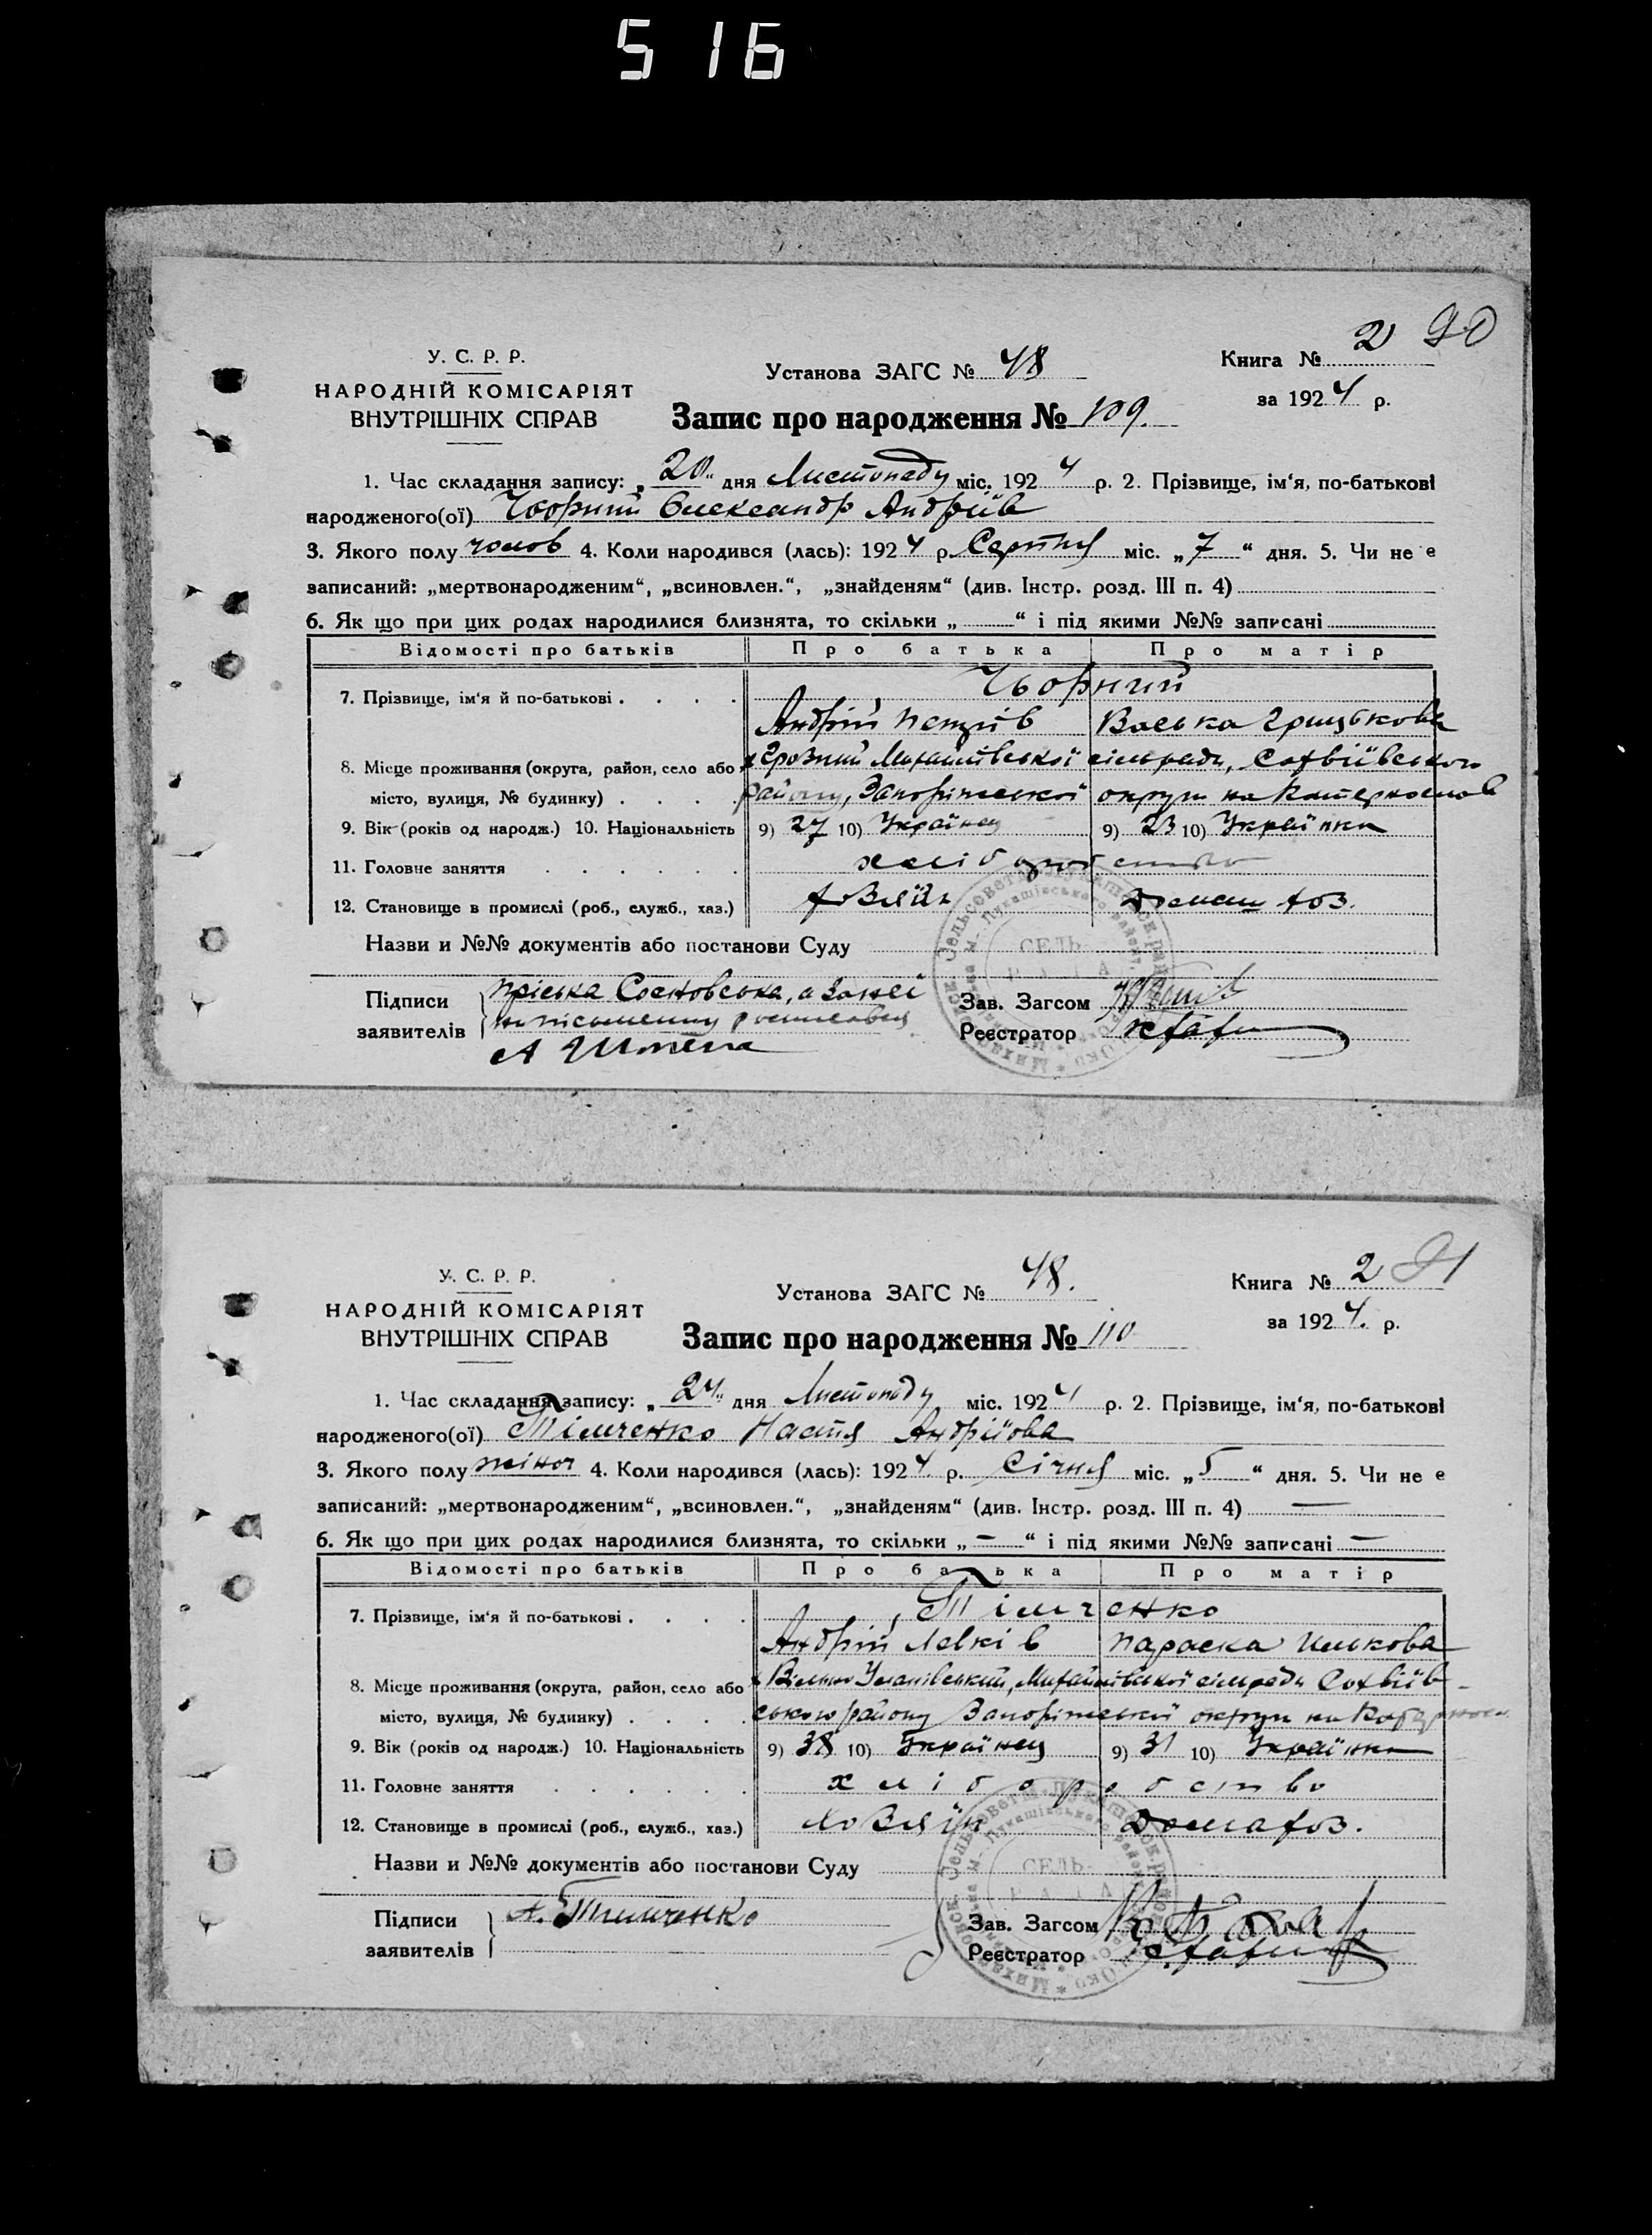 516
2 90
У. С. Р. Р.
НАРОДНІЙ КОМІСАРІЯТ
ВНУТРІШНІХ СПРАВ
Установа ЗАГС № 48
Книга №
за 1924 р.
Запис про народження № 109.
1. Час складання запису: „20“ дня Листопаду міс. 1924 р. 2. Прізвище, ім‘я, по-батькові
народженого(ої) Чорний Олександр Андріїв
3. Якого полу чолов 4. Коли народився (лась): 1924 р. Серпня міс. „7“ дня. 5. Чи не е
записаний: „мертвонародженим“, „всиновлен.“, „знайденям“ (див. Інстр. розд. III п. 4)
6. Як що при цих родах народилися близнята, то скільки „ “ і під якими №№ записані
Відомості про батьків Про батька Про матір
7. Прізвище, ім‘я й по-батькові . . . . Чьорний
Андрій Петрів Васька Грицькова
8. Місце проживання (округа, район, село або х Грозний Михайлівської сільради, Софіївського
місто, вулиця, № будинку) . . . . району, Запоріжської округи на Катеринослав
9. Вік (років од народж.) 10. Національність 9) 27 10) Українец 9) 23 10) Українка
11. Головне заняття . . . . . . хліборобство
12. Становище в промислі (роб., служб., хаз.) хозяїн Домаш хоз.
Назви и №№ документів або постанови Суду
Підписи Пріська Сосновська, а за неї
заявителів неписьменну росписавсь
А Штепа
Зав. Загсом
Реєстратор
СЕЛЬ-
РАДА
2 91
У. С. Р. Р.
НАРОДНІЙ КОМІСАРІЯТ
ВНУТРІШНІХ СПРАВ
Установа ЗАГС № 48.
Книга №
за 1924. р.
Запис про народження № 110
1. Час складання запису: „24“ дня Листопаду міс. 1924 р. 2. Прізвище, ім‘я, по-батькові
народженого(ої) Тімченко Настя Андріїова
3. Якого полу жіноч 4. Коли народився (лась): 1924. р. Січня міс. „5“ дня. 5. Чи не е
записаний: „мертвонародженим“, „всиновлен.“, „знайденям“ (див. Інстр. розд. III п. 4) —
6. Як що при цих родах народилися близнята, то скільки „—“ і під якими №№ записані —
Відомості про батьків Про батька Про матір
7. Прізвище, ім‘я й по-батькові . . . . Тімченко
Андрій Левків Параска Илькова
8. Місце проживання (округа, район, село або х Вільно Уланівський, Михайлівської сільради Софіїв-
місто, вулиця, № будинку) . . . . ського району Запоріжської округи на
9. Вік (років од народж.) 10. Національність 9) 38 10) Українец 9) 31 10) Українка
11. Головне заняття . . . . . . хліборобство
12. Становище в промислі (роб., служб., хаз.) Хозяїн Домахоз.
Назви и №№ документів або постанови Суду
Підписи А. Тимченко
заявителів
Зав. Загсом
Реєстратор
СЕЛЬ-
РАДА